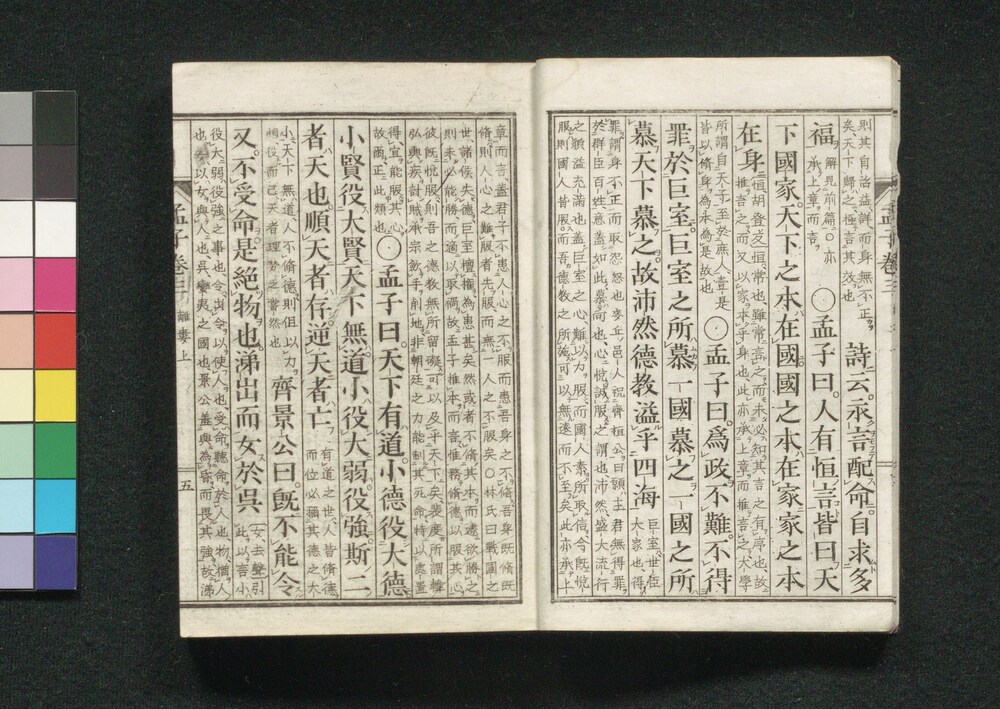 則其自治益詳而身無不正
矣天下歸之極言其效也
詩云永言配命自求多
福
解見前篇○亦
承上章而言
○孟子曰人有恒言皆曰天
下國家天下之本在國國之本在家家之本
在身
恒胡登反○恒常也雖常言之而未必知其言之有序也故
推言之而又以家本乎身也此亦承上章而推言之大學
所謂自天子至於庶人壹是
皆以脩身為本為是故也
○孟子曰爲政不難不得
罪於巨室巨室之所慕一國慕之一國之所
慕天下慕之故沛然德教溢乎四海
巨室世臣
大家也得
罪謂身不正而取怨怒也麥丘邑人祝齊桓公曰願主君無得罪
於群臣百姓意蓋如此慕向也心悅誠服之謂也沛然盛大流行
之貌溢充滿也蓋巨室之心難以力服而國人素所取信今既悅
服則國人皆服而吾德教之所施可以無遠而不至矣此亦承上
章而言蓋君子不患人心之不服而患吾身之不脩吾身既脩既
脩則人心之難服者先服而無一人之不服矣○林氏曰戰國之
世諸侯失德巨室擅權為患甚矣然或者不脩其本而遽欲勝之
則未必能勝而適以取禍故孟子推本而言惟務脩德以服其心
彼既悅服則吾之德教無所留礙可以及乎天下矣裴度所謂韓
弘輿疾討賊承宗斂手削地非朝廷之力能制其死命特以處置
得宜能服其心
故爾正此類也
○孟子曰天下有道小德役大德
小賢役大賢天下無道小役大弱役強斯二
者天也順天者存逆天者亡
有道之世人皆脩德
而位必稱其德之大
小天下無道人不脩德則但以力
相役而已天者理勢之當然也
齊景公曰既不能令
又不受命是絕物也涕出而女於吳
女去聲○引
此以言小
役大弱役強之事也令出令以使人也受命聽命於人也物猶人
也女以女與人也吳蠻夷之國也景公羞與為昏而畏其強故涕
孟子卷三
離婁上
五